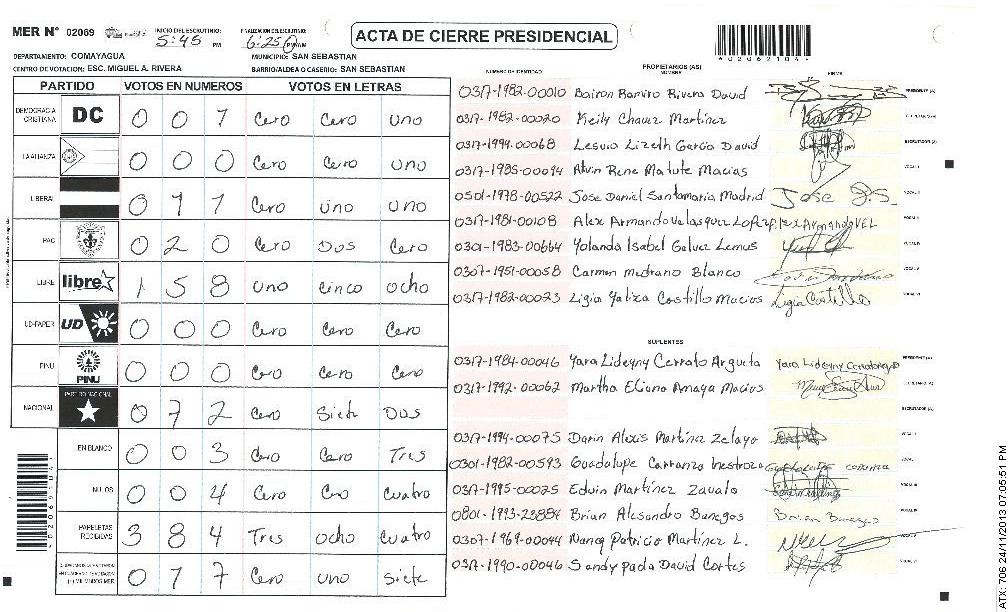 MER N° 02069
INICIO DEL ESCRUTINIO: 5:45 PM
FINALIZACION DEL ESCRUTINIO: 6:25 PM/AM
ACTA DE CIERRE PRESIDENCIAL
*020691044*
DEPARTAMENTO: COMAYAGUA MUNICIPIO: SAN SEBASTIAN
CENTRO DE VOTACION: ESC. MIGUEL A. RIVERA BARRIO/ALDEA O CASERIO: SAN SEBASTIAN
PARTIDO VOTOS EN NUMEROS VOTOS EN LETRAS
DEMOCRACIA CRISTIANA DC 0 0 1 Cero Cero uno
LA ALIANZA 0 0 0 Cero Cero uno
LIBERAL 0 1 1 Cero uno uno
PAC 0 2 0 Cero Dos Cero
LIBRE libre 1 5 8 uno cinco ocho
UD-FAPER UD 0 0 0 Cero Cero Cero
PINU PINU 0 0 0 Cero Cero Cero
NACIONAL PARTIDO NACIONAL 0 7 2 Cero Siete Dos
EN BLANCO 0 0 3 Cero Cero Tres
NULOS 0 0 4 Cero Cero cuatro
PAPELETAS RECIBIDAS 3 8 4 Tres ocho cuatro
0 1 7 Cero uno Siete
NUMERO DE IDENTIDAD PROPIETARIOS (AS) NOMBRE FIRMA
0317-1982-00010 Bairon Ramiro Rivera David PRESIDENTE (A)
0317-1982-00020 Keily Chavez Martinez SECRETARIO (A)
0317-1994-00068 Lesvia Lizeth Garcia David ESCRUTADOR (A)
0317-1985-00094 Alvin Rene Matute Macias VOCAL I
0501-1978-00522 Jose Daniel Santamaria Madrid Jose D.S. VOCAL II
0317-1981-00108 Alex Armando Velasquez Lopez Alex Armando VEL
0301-1983-00664 Yolanda Isabel Galvez Lemus VOCAL IV
0307-1951-00058 Carmen Medrano Blanco VOCAL V
0317-1982-00023 Ligia Yaliza Castillo Macias Ligia Castillo VOCAL VI
SUPLENTES
0317-1984-00046 Yara Lideyny Cerrato Argueta Yara Lideyny PRESIDENTE (A)
0317-1992-00062 Martha Eliana Amaya Macias SECRETARIO (A)
ESCRUTADOR (A)
0317-1994-00075 Darin Alexis Martinez Zelaya VOCAL I
0301-1982-00593 Guadalupe Carranza Inestroza
0317-1995-00025 Edvin Martinez Zavala VOCAL III
0801-1993-23884 Brian Alesandro Banegas Brian Banegas VOCAL IV
0307-1969-00044 Nancy Patricia Martinez L. VOCAL V
0317-1990-00046 Sandy paola David Cortes VOCAL VI
*020691044*
ATX: 706 24/11/2013 07:05:51 PM